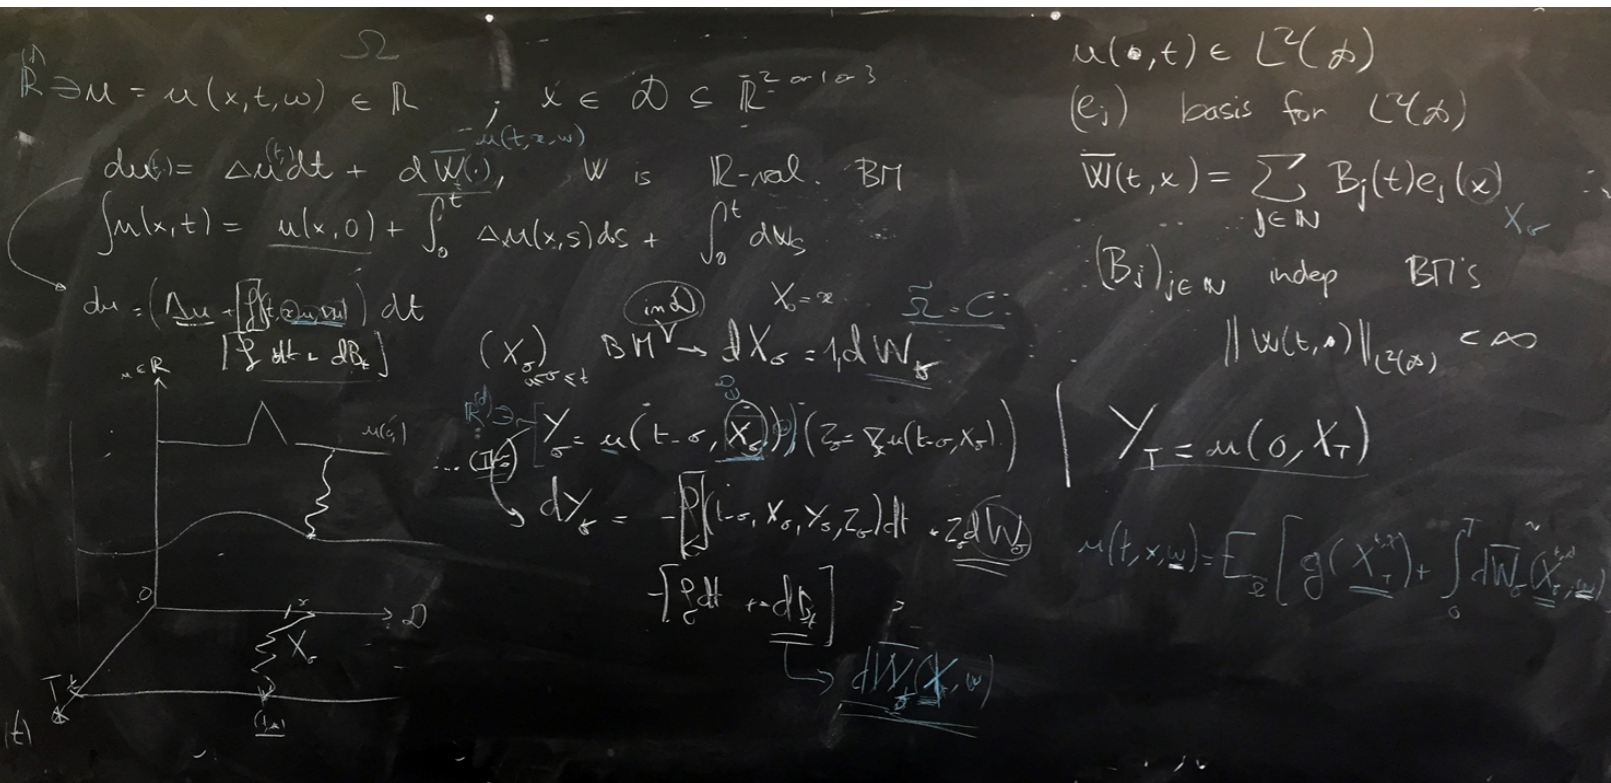 Ω
ℝ^(d) ∋ u = u(x,t,ω) ∈ ℝ ; x ∈ 𝒟 ⊆ ℝ^2 or 1 or 3
u(t,x,ω)
du(t) = Δu(t)dt + dW̅_t(·), W is ℝ-val. BM
∫u(x,t) = u(x,0) + ∫_0^t Δu(x,s)ds + ∫_0^t dW_s
du = (Δu + f(t,x,u,∇u)) dt
[f dt + dB_t]
(X_σ)_{0≤σ≤t} BM in 𝒟 → dX_σ = 1 dW_σ
X_0 = x
Ω̃ = C
ℝ^(d) ∋ Y_σ = u(t-σ, X_σ), (Z_σ = ∇u(t-σ, X_σ))
dY_σ = -f(t-σ, X_σ, Y_σ, Z_σ)dt + Z_σ dW_σ
-[f dt + dB_t]
dW̅_σ(X_σ, ω)
u∈ℝ
u(0,·)
0
x
𝒟
X_σ
T
t
(t,x)
(t)
u(•,t) ∈ L²(𝒟)
(e_j) basis for L²(𝒟)
W̅(t,x) = Σ_{j∈ℕ} B_j(t)e_j(x)
X_σ
(B_j)_{j∈ℕ} indep BM's
‖W(t,•)‖_{L²(𝒟)} < ∞
Y_T = u(0, X_T)
u(t,x,ω) = E_Ω̃ [g(X_T^{t,x}) + ∫_0^T dW̅_σ(X̃_σ^{t,x}, ω)